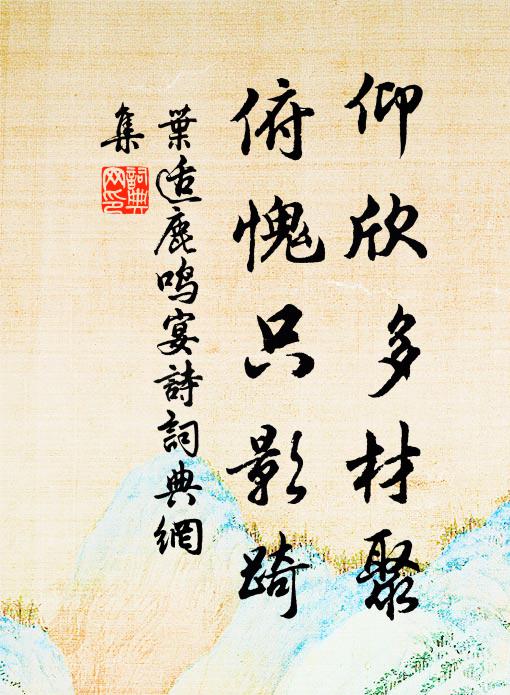 仰欣多材聚
俯愧只影踦
葉适鹿鳴宴詩詞典網
集
詞典網印